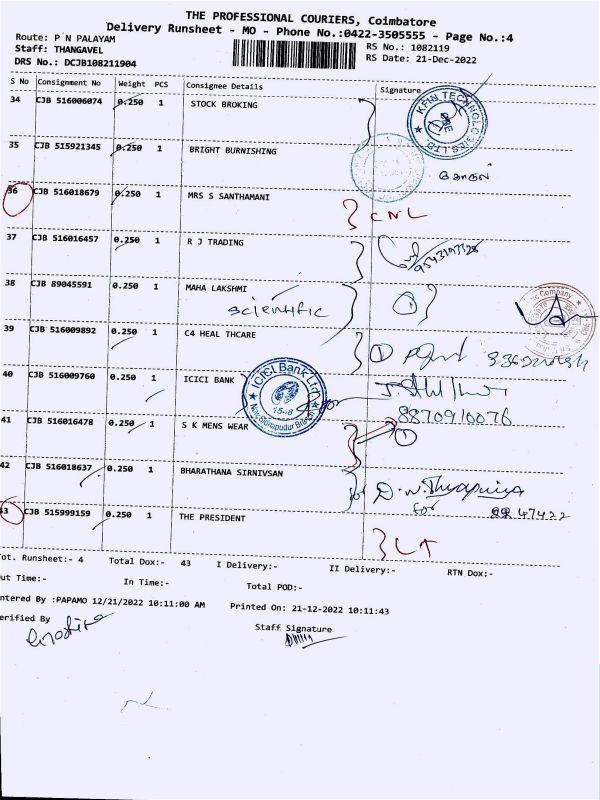 THE PROFESSIONAL COURIERS, Coimbatore
Delivery Runsheet - MO - Phone No.:0422-3505555 - Page No.:4
Route: P N PALAYAM
RS No.: 1082119
Staff: THANGAVEL
RS Date: 21-Dec-2022
DRS No.: DCJB108211904
S No Consignment No Weight PCS Consignee Details Signature
34 CJB 516006074 0.250 1 STOCK BROKING
KFIN TECHNOLOGIES LTD.
35 CJB 515921345 0.250 1 BRIGHT BURNISHING
கோகுல்
36 CJB 516018679 0.250 1 MRS S SANTHAMANI
CNL
37 CJB 516016457 0.250 1 R J TRADING
38 CJB 89045591 0.250 1 MAHA LAKSHMI
scientific
1
39 CJB 516009892 0.250 1 C4 HEAL THCARE
1
40 CJB 516009760 0.250 1 ICICI BANK
ICICI Bank Ltd
8870910076
41 CJB 516016478 0.250 1 S K MENS WEAR
1
42 CJB 516018637 0.250 1 BHARATHANA SIRNIVSAN
for
43 CJB 515999159 0.250 1 THE PRESIDENT
ot. Runsheet:- 4 Total Dox:- 43 I Delivery:- II Delivery:- RTN Dox:-
ut Time:- In Time:- Total POD:-
ntered By :PAPAMO 12/21/2022 10:11:00 AM Printed On: 21-12-2022 10:11:43
erified By
Staff Signature